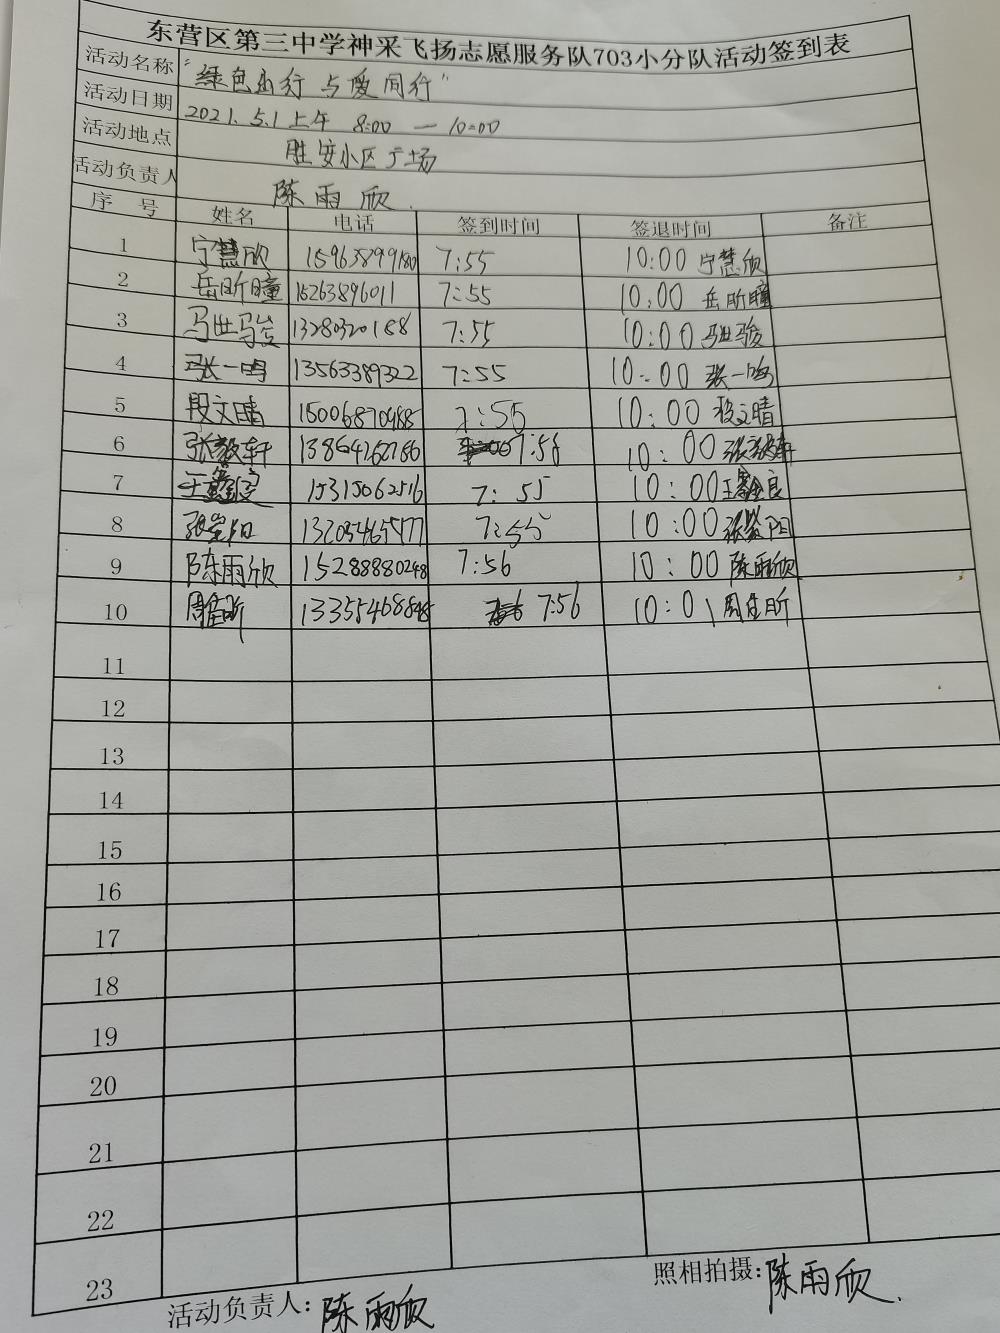 东营区第三中学神采飞扬志愿服务队703小分队活动签到表
活动名称 "绿色出行 与爱同行"
活动日期 2021.5.1上午 8:00 — 10:00
活动地点 胜安小区广场
活动负责人 陈雨欣.
序 号 姓名 电话 签到时间 签退时间 备注
1 宁慧欣 7:55 10:00 宁慧欣
2 岳昕瞳 15263896011 7:55 10:00 岳昕瞳
3 马世骏 13280320188 7:55 10:00 马世骏
4 张一鸣 13563389322 7:55 10:00 张一鸣
5 段文晴 7:55 10:00 段文晴
6 张毅轩 13864262786 7:56 10:00 张毅轩
7 15315062516 7:55 10:00
8 13205465477 7:55 10:00
9 陈雨欣 15288880248 7:56 10:00 陈雨欣
10 周佳昕 13355468848 7:56 10:01 周佳昕
11
12
13
14
15
16
17
18
19
20
21
22
23
活动负责人: 陈雨欣
照相拍摄: 陈雨欣.